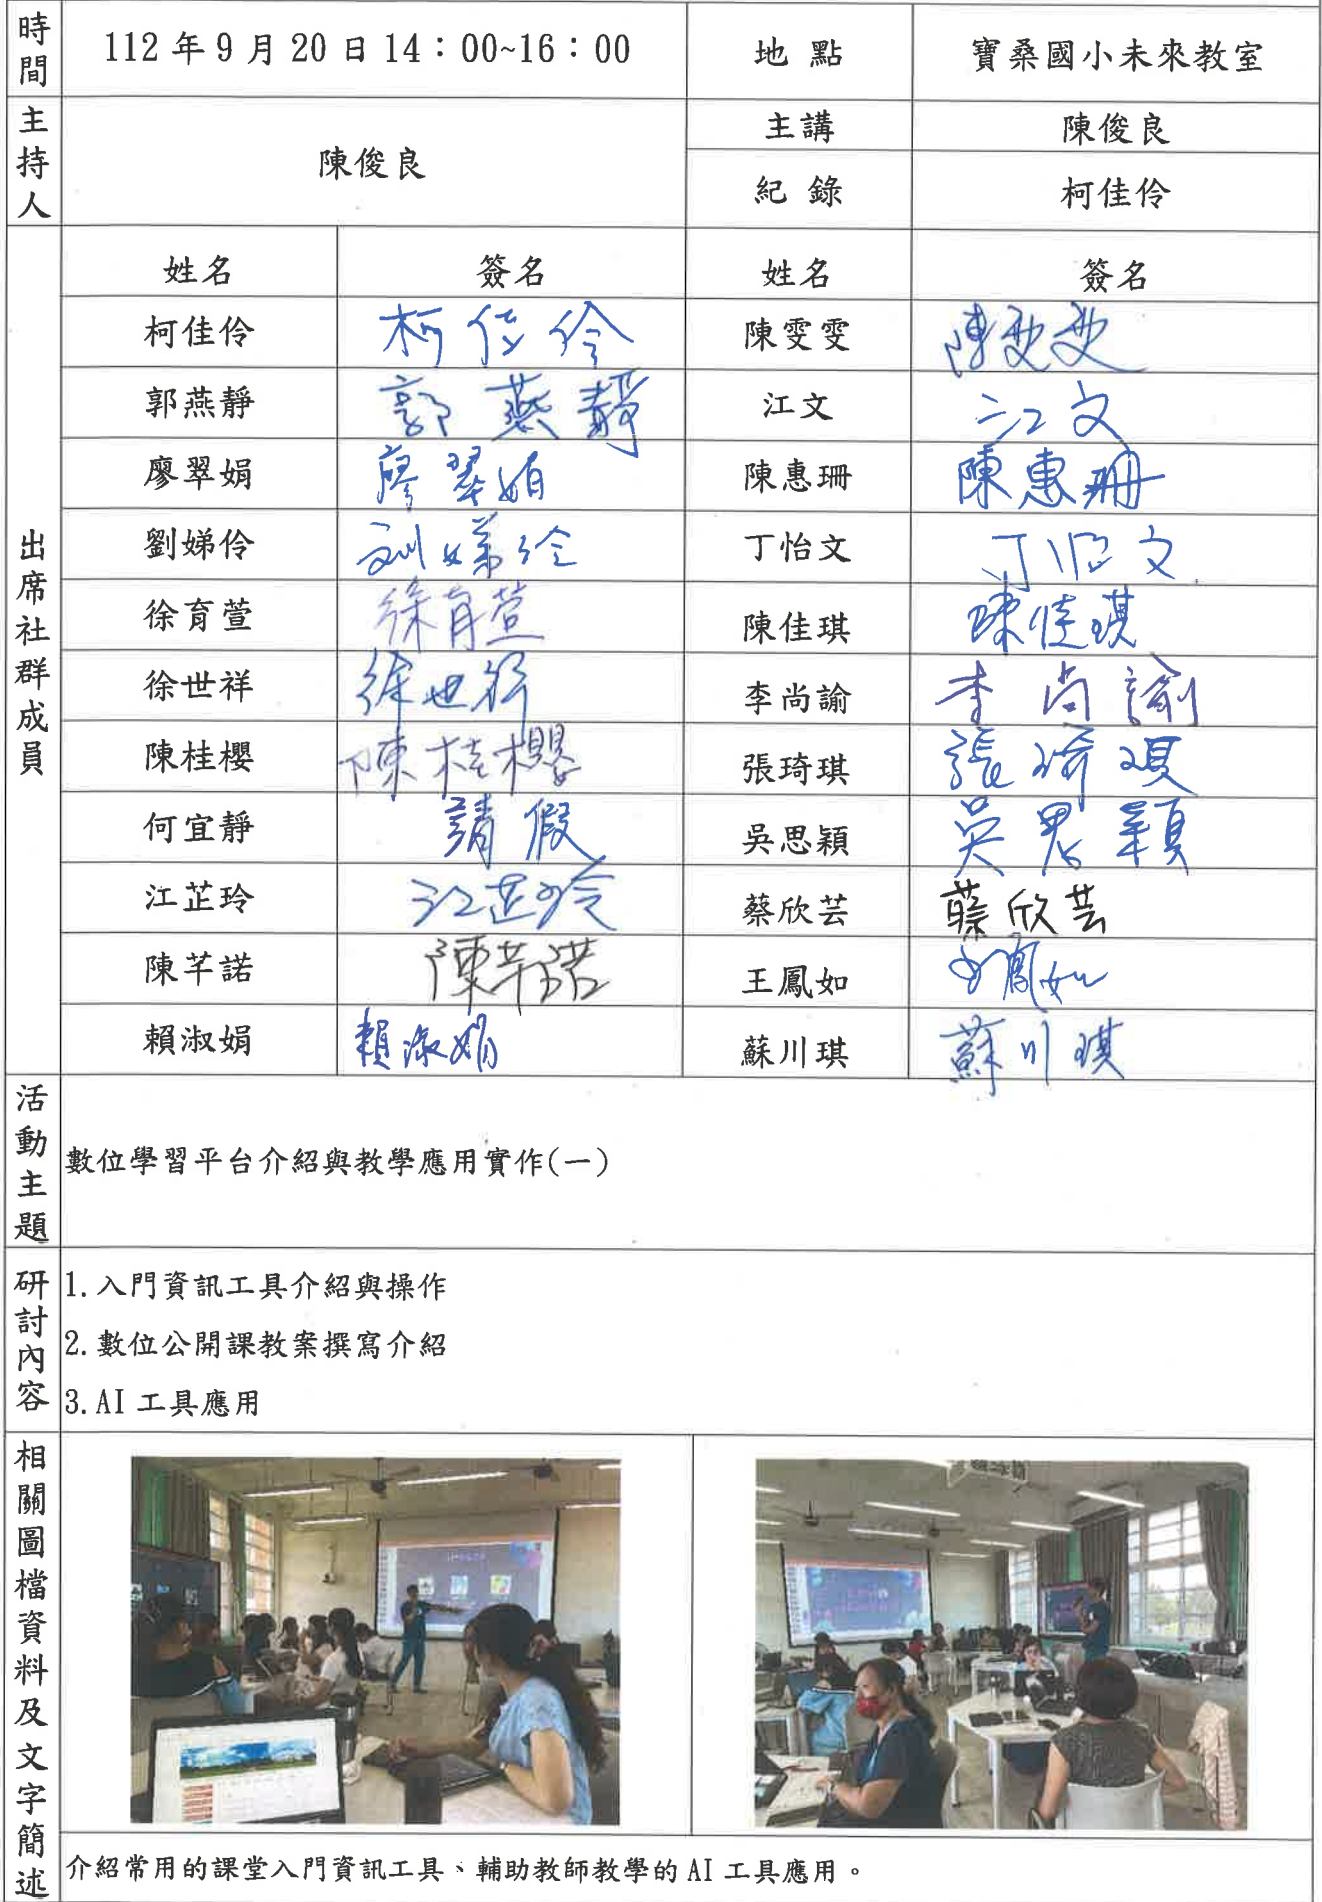 時間 112年9月20日14：00~16：00 地 點 寶桑國小未來教室
主持人 陳俊良 主講 陳俊良
紀 錄 柯佳伶
出席社群成員
姓名 簽名 姓名 簽名
柯佳伶 柯佳伶 陳雯雯 陳雯雯
郭燕靜 郭燕靜 江文 江文
廖翠娟 廖翠娟 陳惠珊 陳惠珊
劉娣伶 劉娣伶 丁怡文 丁怡文
徐育萱 徐育萱 陳佳琪 陳佳琪
徐世祥 徐世祥 李尚諭 李尚諭
陳桂櫻 陳桂櫻 張琦琪 張琦琪
何宜靜 請假 吳思穎 吳思穎
江芷玲 江芷玲 蔡欣芸 蔡欣芸
陳芊諾 陳芊諾 王鳳如 王鳳如
賴淑娟 賴淑娟 蘇川琪 蘇川琪
活動主題 數位學習平台介紹與教學應用實作(一)
研討內容
1.入門資訊工具介紹與操作
2.數位公開課教案撰寫介紹
3.AI 工具應用
相關圖檔資料及文字簡述
介紹常用的課堂入門資訊工具、輔助教師教學的 AI 工具應用。